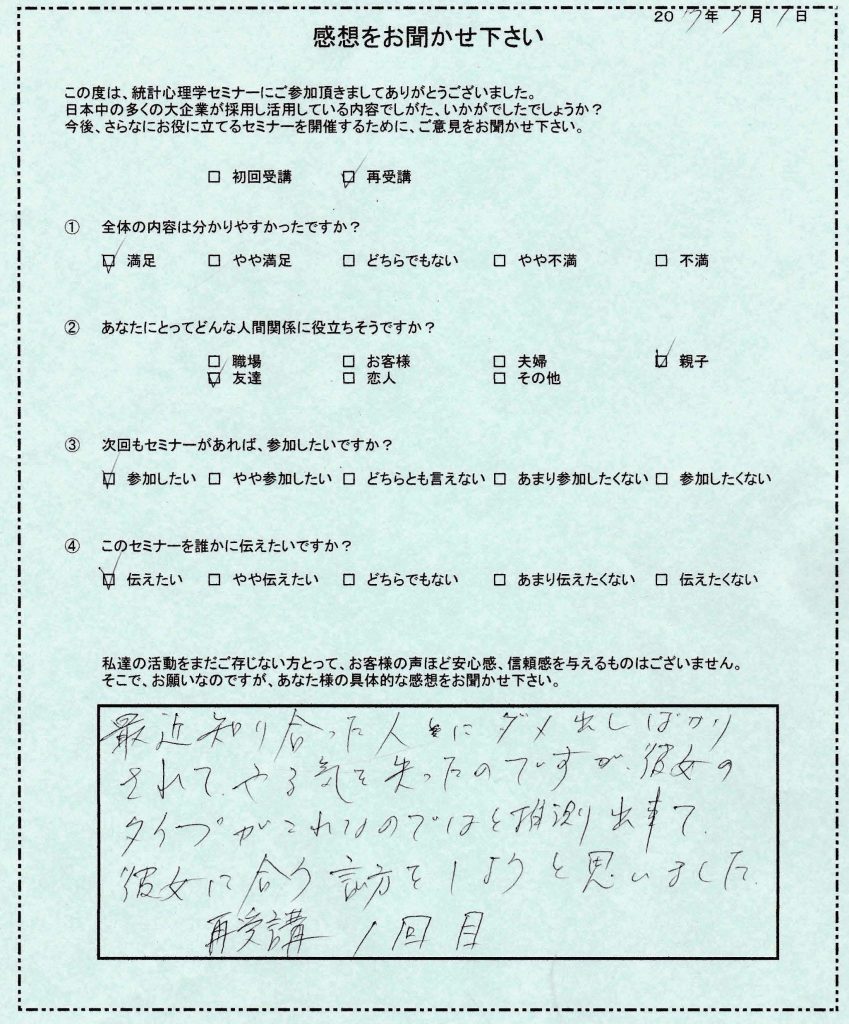 20 年 月 日
感想をお聞かせ下さい
この度は、統計心理学セミナーにご参加頂きましてありがとうございました。
日本中の多くの大企業が採用し活用している内容でしがた、いかがでしたでしょうか？
今後、さらなにお役に立てるセミナーを開催するために、ご意見をお聞かせ下さい。
□ 初回受講 □ 再受講
① 全体の内容は分かりやすかったですか？
□ 満足 □ やや満足 □ どちらでもない □ やや不満 □ 不満
② あなたにとってどんな人間関係に役立ちそうですか？
□ 職場 □ お客様 □ 夫婦 □ 親子
□ 友達 □ 恋人 □ その他
③ 次回もセミナーがあれば、参加したいですか？
□ 参加したい □ やや参加したい □ どちらとも言えない □ あまり参加したくない □ 参加したくない
④ このセミナーを誰かに伝えたいですか？
□ 伝えたい □ やや伝えたい □ どちらでもない □ あまり伝えたくない □ 伝えたくない
私達の活動をまだご存じない方とって、お客様の声ほど安心感、信頼感を与えるものはございません。
そこで、お願いなのですが、あなた様の具体的な感想をお聞かせ下さい。
最近知り合った人にダメ出しばかり
されて、やる気を失ったのですが、彼女の
タイプがこれなのではと推測出来て、
彼女に合う言方をしようと思いました。
再受講 1回目